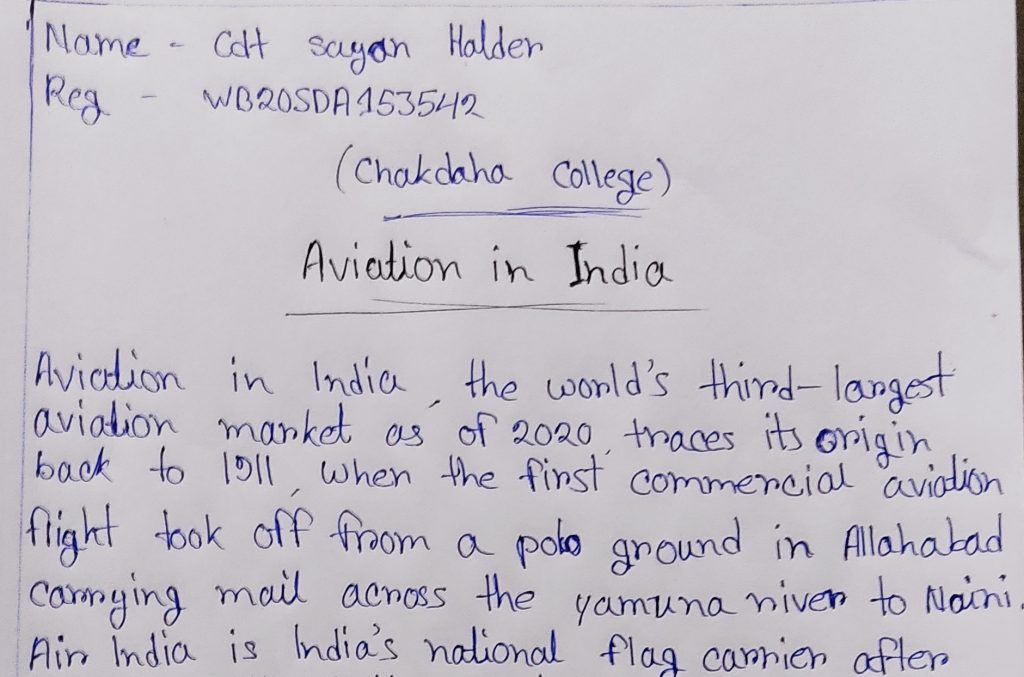 Name - Cdt Sayan Halder
Reg - WB20SDA153542
(Chakdaha College)
Aviation in India
Aviation in India, the world's third-largest
aviation market as of 2020, traces its origin
back to 1911, when the first commercial aviation
flight took off from a polo ground in Allahabad
carrying mail across the yamuna river to Naini.
Air India is India's national flag carrier after